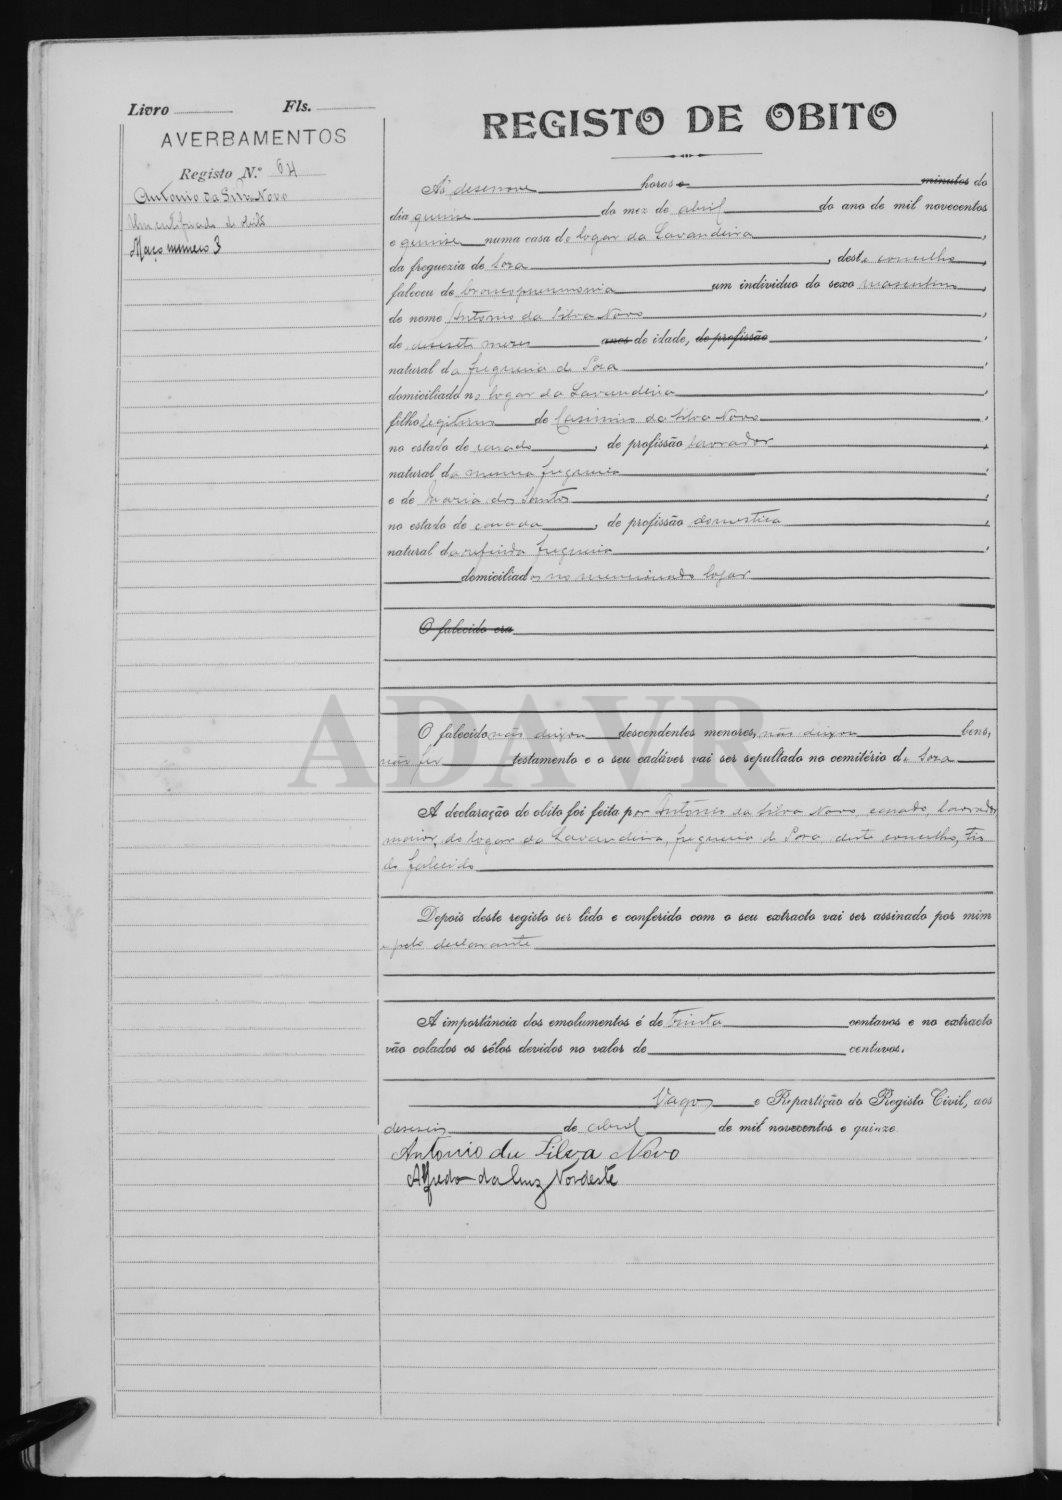 Livro Fls.
AVERBAMENTOS
Registo N.º 64
Antonio da Silva Novo
Um certificado d' obito
Maço numero 3
REGISTO DE OBITO
Ás desenove horas e minutos do
dia quinse do mez de abril do ano de mil novecentos
e quinse numa casa do logar da Lavandeira,
da freguezia de Soza, deste concelho,
faleceu de broncopneumonia um individuo do sexo masculino,
de nome Antonio da Silva Novo,
de desesete meses anos de idade, de profissão,
natural da freguesia de Soza,
domiciliado no logar da Lavandeira,
filho legitimo de Casimiro da Silva Novo,
no estado de casado, de profissão lavrador,
natural da mesma freguesia,
e de Maria dos Santos,
no estado de casada, de profissão domestica,
natural da referida freguesia,
domiciliados no mencionado logar
O falecido era
O falecido não deixou descendentes menores, não deixou bens,
não fez testamento e o seu cadáver vai ser sepultado no cemitério de Soza
A declaração do obito foi feita por Antonio da Silva Novo, casado, lavrador,
maior, do logar da Lavandeira, freguesia de Soza, deste concelho, tio
do falecido
Depois deste registo ser lido e conferido com o seu extracto vai ser assinado por mim
e pelo declarante
A importância dos emolumentos é de trinta centavos e no extracto
vão colados os sêlos devidos no valor de centavos.
Vagos e Repartição do Registo Civil, aos
deseseis de abril de mil novecentos e quinze
Antonio da Silva Novo
Alfredo da Cruz Nordeste
ADAVR